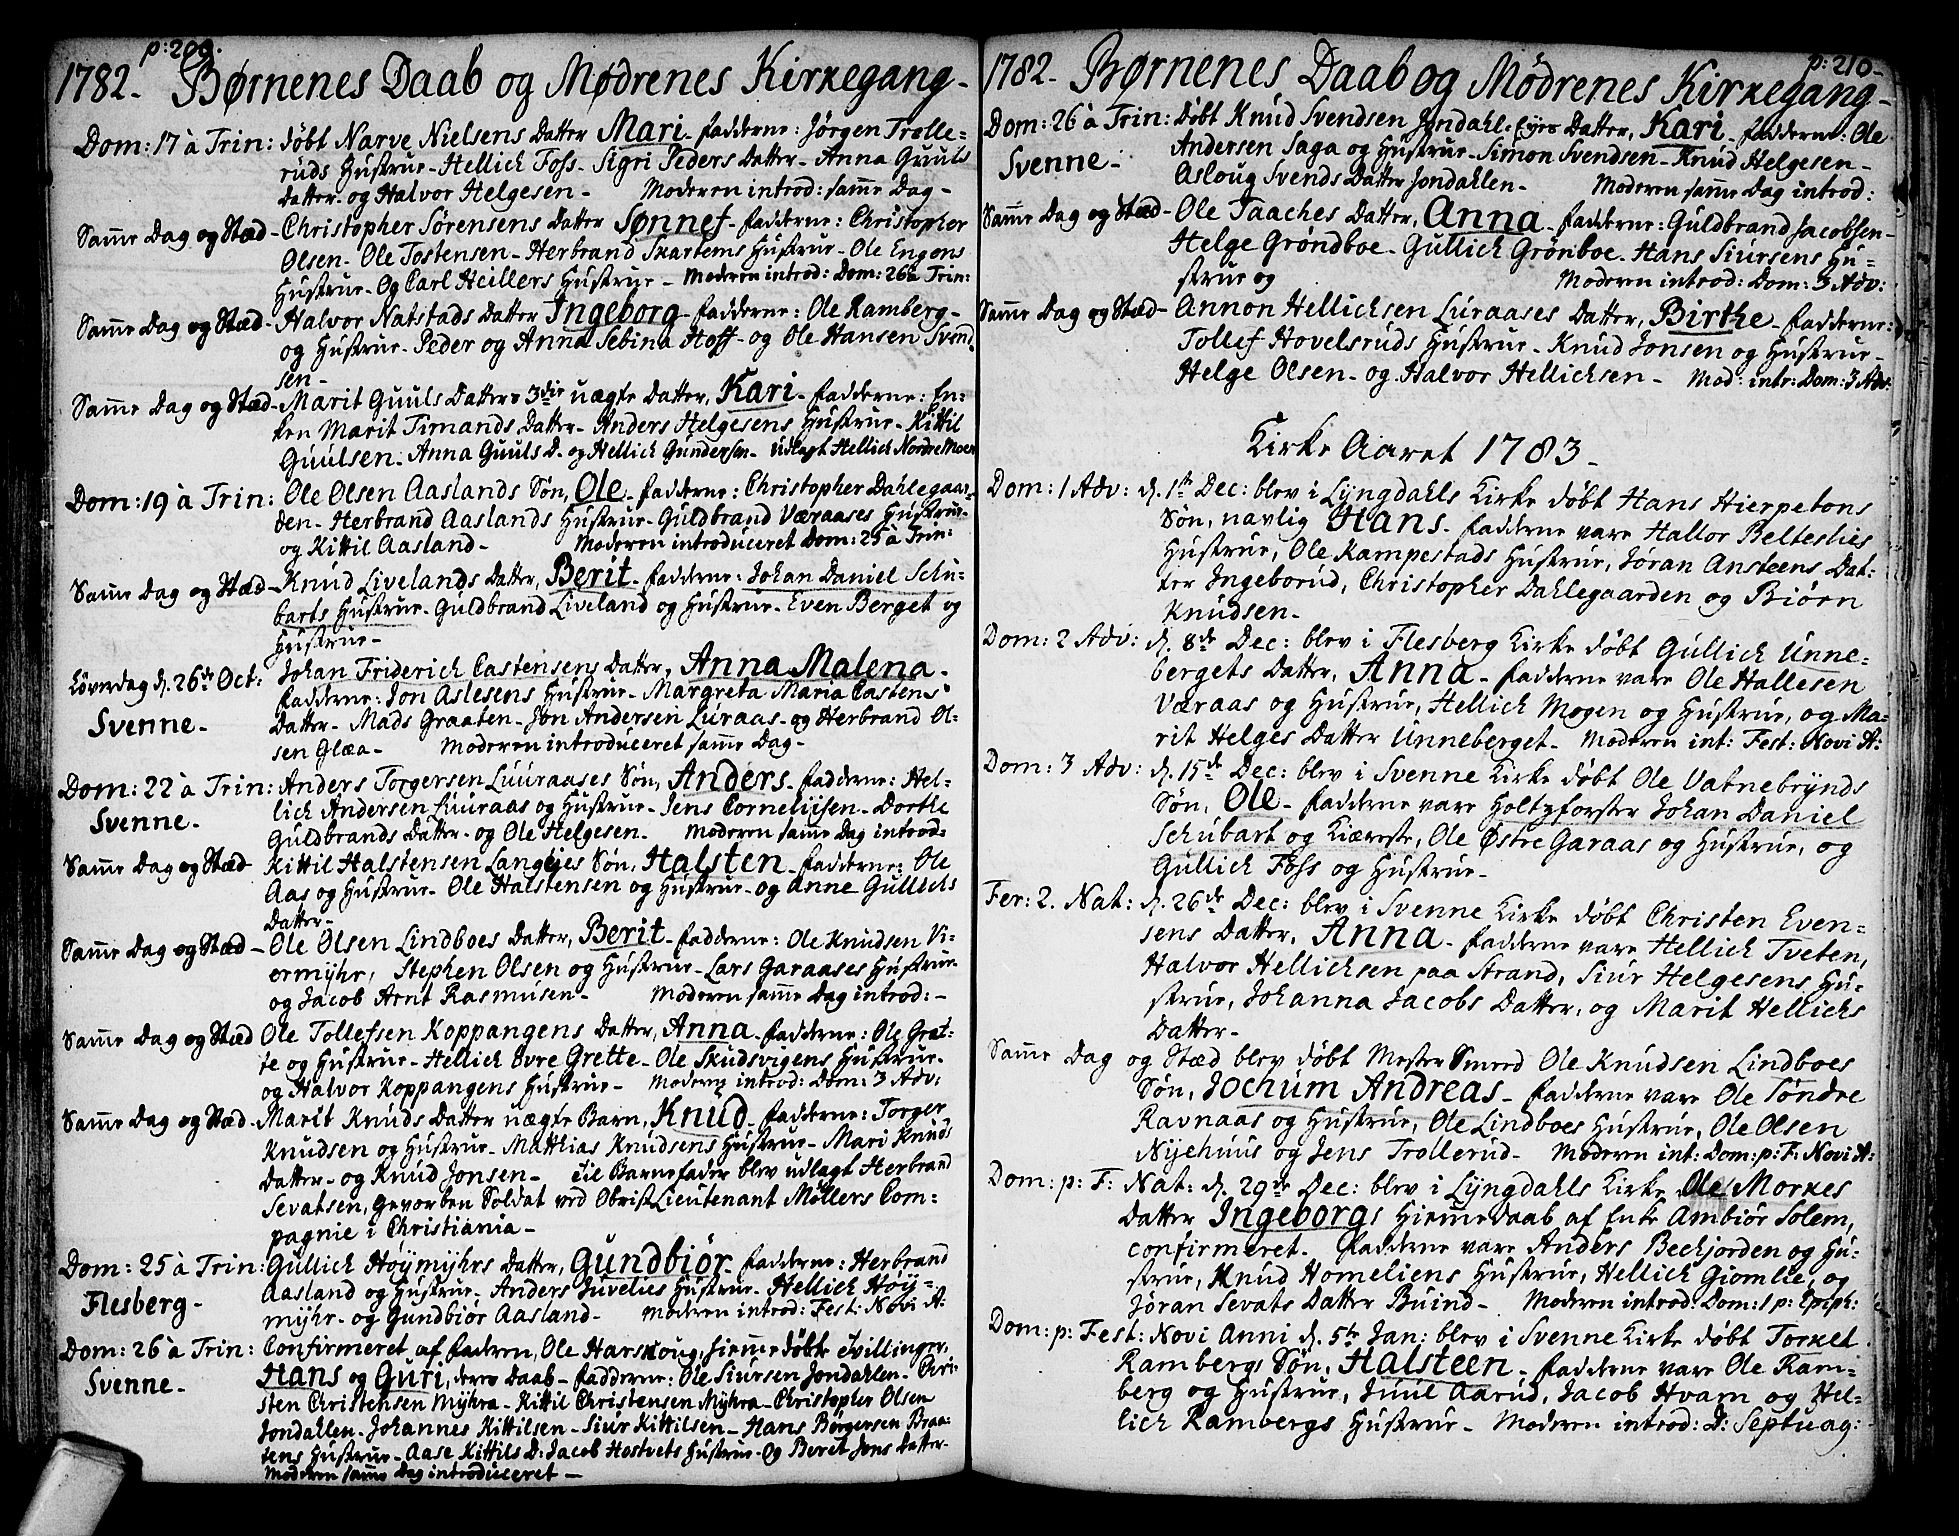 p: 209.
1782. Børnenes Daab og Mødrenes Kirkegang-
Dom: 17 à Trin: døbt Narve Nielsens Datter Mari- fadderne: Jørgen Trolle=
ruds Hustrue- Hellich Foss- Sigri Peders Datter- Anna Guuls
Datter- og Halvor Helgesen- Moderen introd: samme Dag-
Samme Dag og Stæd- Christopher Sørensens Datter Sønnef- fadderne: Christopher
Olsen- Ole Tostensen- Herbrand Skartems Hustrue- Ole Engens
Hustrue- Og Carl Heillers Hustrue- Moderen introd: Dom: 26 à Trin:
Samme Dag og Stæd- Halvor Natstads Datter Ingeborg- fadderne: Ole Ramberg-
og Hustrue- Peder og Anna Sebina Hoff- og Ole Hansen Svend
sen-
Samme Dag og Stæd- Marit Guuls Datters 3die uægte Datter, Kari- fadderne: En=
ken Marit Timands Datter- Anders Helgesens Hustrue- Kittil
Guulsen- Anna Guuls D- og Hellich Gundersen- Udlagt Hellich Nordre Moen
Dom: 19 à Trin: Ole Olsen Aaslands Søn, Ole- fadderne: Christopher Dahlegaar=
den- Herbrand Aaslands Hustrue- Guldbrand Væraases Hustrue-
og Kittil Aasland- Moderen introduceret Dom: 25 à Trin:
Samme Dag og Stæd- Knud Livelands Datter, Berit- fadderne: Johan Daniel Schu=
barts Hustrue- Guldbrand Liveland og Hustrue- Even Berget og
Hustrue-
Løverdag d. 26de Oct: Johan Friderich Castensens Datter, Anna Malena-
Svenne-
fadderne: Jon Aslesens Hustrue- Margreta Maria Castens
Datter- Mads Graaten- Jon Andersen Luraas- og Herbrand Ol=
sen Glæa- Moderen introduceret samme Dag-
Dom: 22 à Trin: Anders Torgersen Luuraases Søn, Anders- fadderne: Hel=
Svenne-
lich Andersen Luuraas og Hustrue- Jens Cornelijsen- Dorthe
Guldbrands Datter- og Ole Helgesen- Moderen samme Dag introd=
Samme Dag og Stæd Kittil Halstensen Langøes Søn, Halsten- fadderne: Ole
Aas og Hustrue- Ole Halstensen og Hustrue- og Anne Gullichs
Datter-
Samme Dag og Stæd- Ole Olsen Lindboes Datter, Berit- fadderne: Ole Knudsen Vi=
ermyhr, Stephen Olsen og Hustrue- Lars Garaases Hustrue-
og Jacob Arnt Rasmusen- Moderen samme Dag introd:-
Samme Dag og Stæd Ole Tollefsen Koppangens Datter, Anna- fadderne: Ole Gret=
te og Hustrue- Hellich Øvre Grette- Ole Skudsvigens Hustrue-
og Halvor Koppangens Hustrue- Moderen introd: Dom: 3 Adv:
Samme Dag og Stæd- Marit Knuds Datter uægte Barn, Knud- fadderne: Torger
Knudsen og Hustrue- Matthias Knudsens Hustrue- Mari Knuds
Datter- og Knud Jonsen- Til Barnefader blev udlagt Herbrand
Sevatsen, gevorben Soldat ved ObristLieutenant Møllers Com=
pagnie i Christiania-
Dom: 25 à Trin: Gullich Høymyhrs Datter, Gundbiør- fadderne: Herbrand
Flesberg-
Aasland og Hustrue- Anders Juvelies Hustrue- Hellich Høy=
myhr- og Gundbiør Aasland- Moderen introd: Fest: Novi A:
Dom: 26 à Trin: Confirmeret af faderen, Ole Harskoug, hiemmedøbte Tvillinger,
Svenne-
Hans og Guri, deres Daab- fadderne: Ole Siursen Jondahlen- Cri=
sten Christensen Myhra- Kittil Christensen Myhra- Christopher Olsen
Jondahlen- Johannes Kittilsen- Siur Kittilsen- Hans Børgersen Braa=
tens Hustrue- Aase Kittils D: Jacob Hostvets Hustrue- Og Berit Jons Datter-
Moderen samme Dag introduceret-
p: 210-
1782- Børnenes Daab og Mødrenes Kirkegang-
Dom: 26 à Trin: døbt Knud Svendsen Jondahls Eyes Datter, Kari- fadderne: Ole
Svenne-
Andersen Saga og Hustrue- Simon Svendsen- Knud Helgesen-
Asloug Svends Datter Jondahlen- Moderen samme Dag introd:
Samme Dag og Stæd- Ole Taaches Datter, Anna- fadderne: Guldbrand Jacobsen-
Helge Grøndboe- Gullich Grønboe- Hans Siursens Hu=
strue og Moderen introd: Dom: 3 Adv:
Samme Dag og Stæd- Annon Hellichsen Luraases Datter, Birthe- fadderne:
Tollef Hovelsruds Hustrue- Knud Jonsen og Hustrue-
Helge Olsen- og Halvor Hellichsen- Mod: intr: Dom: 3 Adv:
Kirke Aaret 1783-
Dom: 1 Adv: d. 1te Dec: blev i Lyngdahls Kirke døbt Hans Hierpetons
Søn, navlig Hans- fadderne vare Hallor Belteslies
Hustrue, Ole Kampestads Hustrue, Jøran Ansteens Dat=
ter Ingeborud, Christopher Dahlegaarden og Biørn
Knudsen-
Dom: 2 Adv: d. 8de Dec: blev i Flesberg Kirke døbt Gullich Unne=
bergets Datter, Anna- fadderne vare Ole Hallesen
Væraas og Hustrue, Hellich Mogen og Hustrue, og Ma=
rit Helges Datter Unneberget- Moderen int: Fest: Novi A:
Dom: 3 Adv: d. 15de Dec: blev i Svenne Kirke døbt Ole Vatnebrynds
Søn, Ole- fadderne vare Holtzforster Johan Daniel
Schubart og Kiæreste, Ole Østre Garaas og Hustrue, og
Gullich Foss og Hustrue-
Fer: 2. Nat: d. 26de Dec: blev i Svenne Kirke døbt Christen Even=
sens Datter, Anna- fadderne vare Hellich Tveten,
Halvor Hellichsen paa Strand, Siur Helgesens Hu=
strue, Johanna Jacobs Datter, og Marit Hellichs
Datter-
Samme Dag og Stæd blev døbt Mester Smed Ole Knudsen Lindboes
Søn, Jochum Andreas- fadderne vare Ole Søndre
Ravnaas og Hustrue, Ole Lindboes Hustrue, Ole Olsen
Nyehuus og Jens Trollerud- Moderen int: Dom: p: F: Novi A:
Dom: p: F: Nat: d. 29de Dec: blev i Lyngdahls Kirke Ole Morkes
Datter Ingeborgs Hiemmedaab af Enke Ambiør Solem,
confirmeret. fadderne vare Anders Beckjorden og Hu=
strue, Knud Homeliens Hustrue, Hellich Giomlie, og
Jøran Sevats Datter Buind- Moderen introd: Dom: 1 p: Epiph:
Dom: p: Fest: Novi Anni d. 5te Jan: blev i Svenne Kirke døbt Torkel
Rambergs Søn, Halsteen- fadderne vare Ole Ram=
berg og Hustrue, Juul Aarud, Jacob Hvam og Hel=
lich Rambergs Hustrue- Moderen introd: D: Septuag: